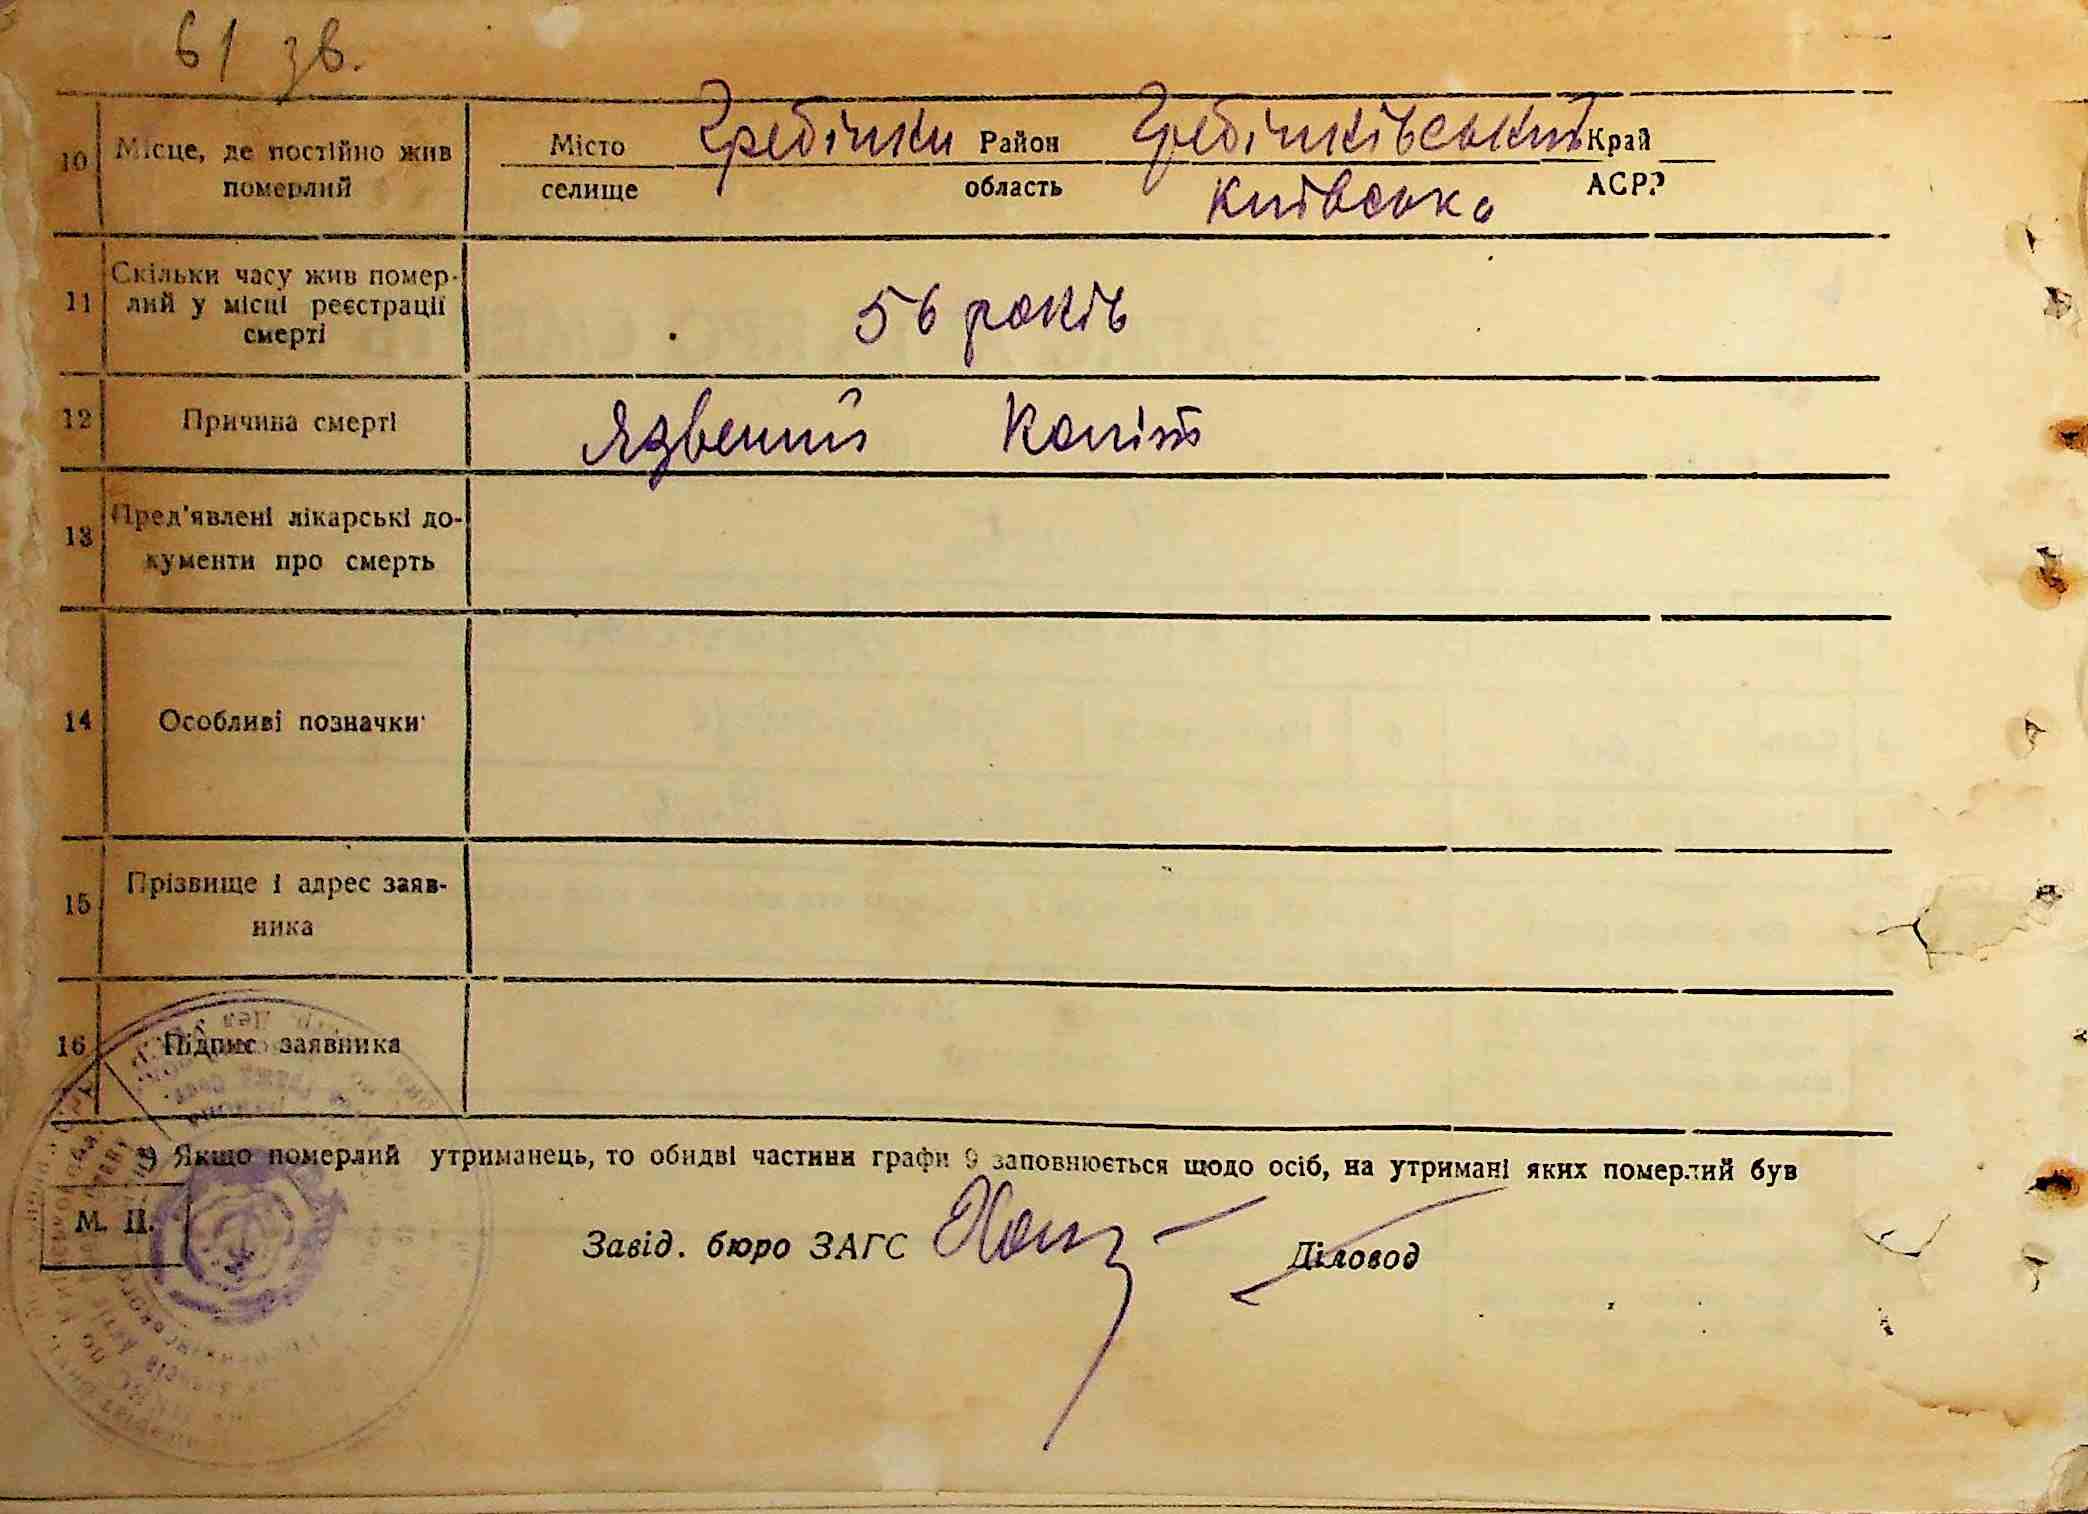 61 зв.
10 Місце, де постійно жив померлий Місто Гребінки Район Гребінківський Край
селище область Київська АСРР
11 Скільки часу жив помер-
лий у місці реєстрації
смерті
56 років
12 Причина смерті Язвений Коліт
13 Пред'явлені лікарські до-
кументи про смерть
14 Особливі позначки
15 Прізвище і адрес заяв-
ника
16 Підпис заявника
Якщо померлий утриманець, то обидві частини графи 9 заповнюється щодо осіб, на утримані яких померлий був
М. П.
Завід. бюро ЗАГС Діловод